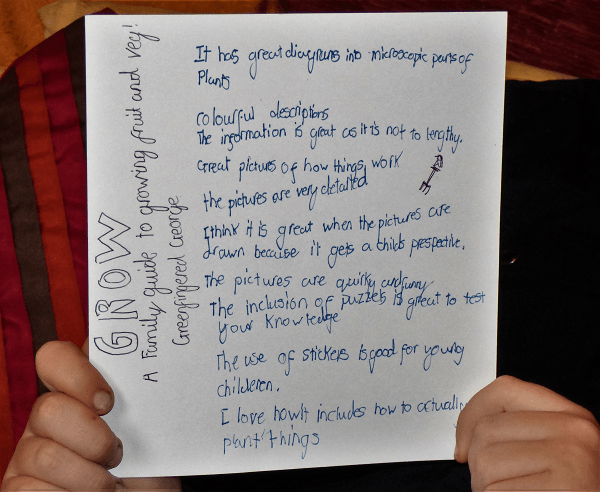 GROW
A Family guide to growing fruit and veg!
Greenfingered George
It has great diagrams into microscopic parts of
Plants
colourful descriptions
The information is great as it is not to lengthy.
Great pictures of how things work
the pictures are very detailed
I think it is great when the pictures are
drawn because it gets a childs prespective.
The pictures are quirky and funny
The inclusion of puzzels is great to test
your knowledge
The use of stickers is good for young
childeren.
I love how it includes how to actually
plant things